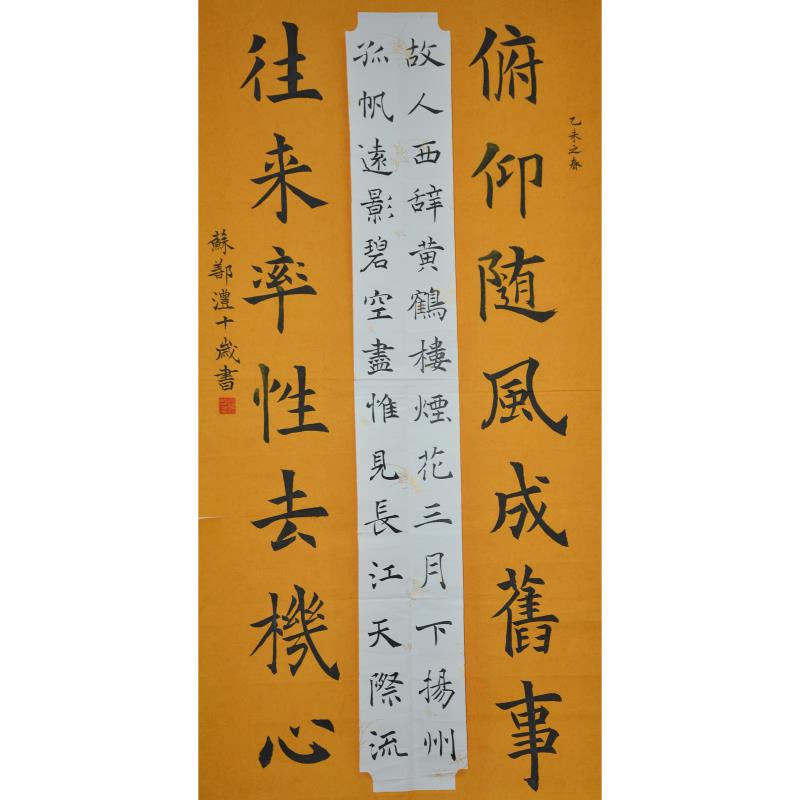 俯仰随風成舊事
乙未之春
故人西辞黄鶴樓煙花三月下揚州
孤帆遠影碧空盡惟見長江天際流
往来率性去機心
蘇鄯澧十歲書